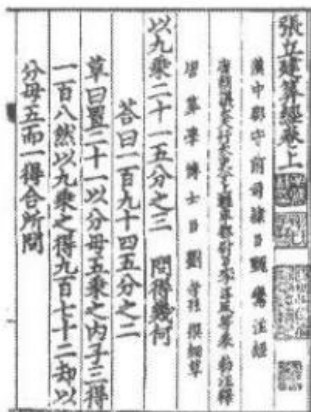 張丘建算經卷上
漢中郡守前司隸臣甄鸞注經
唐朝議大夫行太史令上輕車都尉臣李淳風等奉勅注釋
唐算學博士臣劉孝孫撰細草
以九乘二十一五分之三　問得幾何
荅曰一百九十四五分之二
草曰置二十一以分母五乘之内子三得
一百八然以九乘之得九百七十二却以
分母五而一得合所問